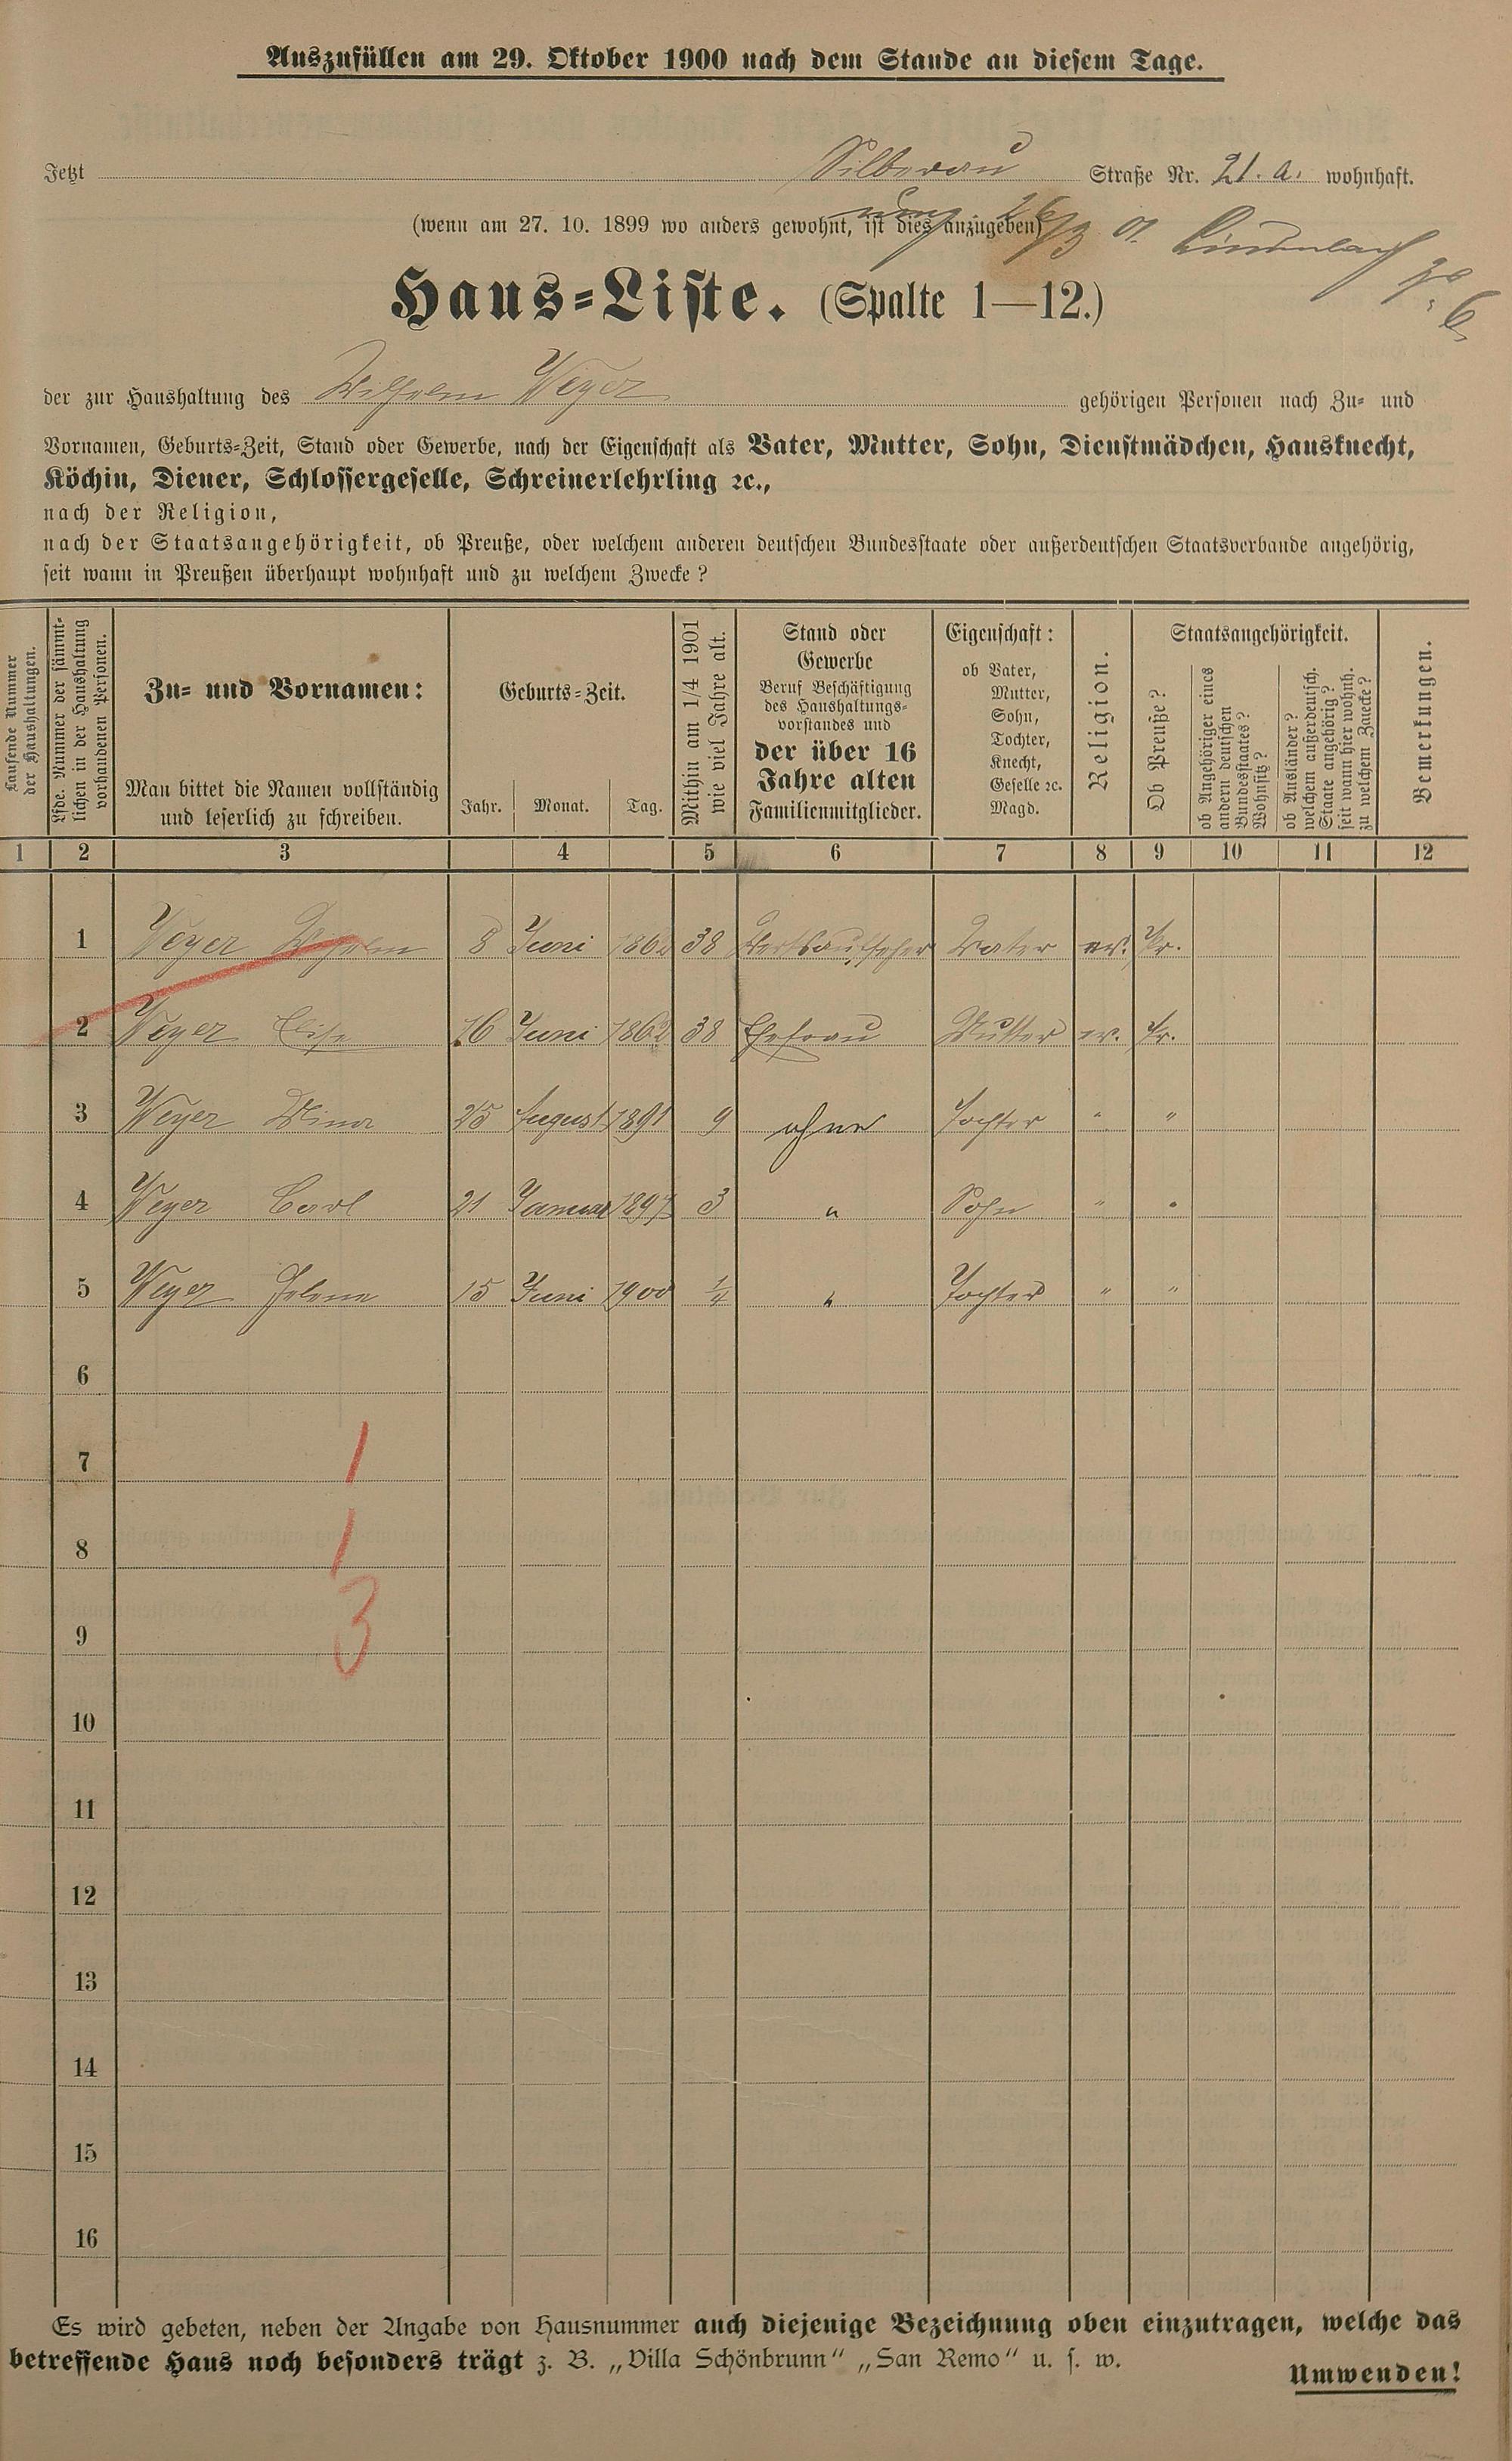 Auszufüllen am 29. Oktober 1900 nach dem Stande an diesem Tage.
Jetzt Silberau Straße Nr. 21. a. wohnhaft.
(wenn am 27. 10. 1899 wo anders gewohnt, ist dies anzugeben)
Haus-Liste. (Spalte 1—12.)
der zur Haushaltung des Wilhelm Weyer gehörigen Personen nach Zu- und
Vornamen, Geburts-Zeit, Stand oder Gewerbe, nach der Eigenschaft als Vater, Mutter, Sohn, Dienstmädchen, Hausknecht,
Köchin, Diener, Schlossergeselle, Schreinerlehrling ꝛc.,
nach der Religion,
nach der Staatsangehörigkeit, ob Preuße, oder welchem anderen deutschen Bundesstaate oder außerdeutschen Staatsverbande angehörig,
seit wann in Preußen überhaupt wohnhaft und zu welchem Zwecke?
Laufende Nummer
der Haushaltungen.
Lfde. Nummer der sämmt-
lichen in der Haushaltung
vorhandenen Personen.
Zu- und Vornamen:
Man bittet die Namen vollständig
und leserlich zu schreiben.
Geburts-Zeit.
Jahr. Monat. Tag.
Mithin am 1/4 1901
wie viel Jahre alt.
Stand oder
Gewerbe
Beruf Beschäftigung
des Haushaltungs-
vorstandes und
der über 16
Jahre alten
Familienmitglieder.
Eigenschaft:
ob Vater,
Mutter,
Sohn,
Tochter,
Knecht,
Geselle ꝛc.
Magd.
Religion.
Staatsangehörigkeit.
Ob Preuße?
ob Angehöriger eines
andern deutschen
Bundesstaates?
Wohnsitz?
ob Ausländer?
welchem außerdeutsch.
Staate angehörig?
seit wann hier wohnh.
zu welchem Zwecke?
Bemerkungen.
1 2 3 4 5 6 7 8 9 10 11 12
1 Weyer Wilhelm 8 Juni 1862 38 Vater ev. Pr.
2 Weyer Elise 16 Juni 1862 38 Ehefrau Mutter ev. Pr.
3 Weyer Mina 25 August 1891 9 ohne Tochter " "
4 Weyer Carl 21 Januar 1897 3 " Sohn " "
5 Weyer Helene 15 Juni 1900 1/4 " Tochter " "
6
7 1
8 1
9 3
10
11
12
13
14
15
16
Es wird gebeten, neben der Angabe von Hausnummer auch diejenige Bezeichnung oben einzutragen, welche das
betreffende Haus noch besonders trägt z. B. „Villa Schönbrunn“ „San Remo“ u. s. w.
Umwenden!